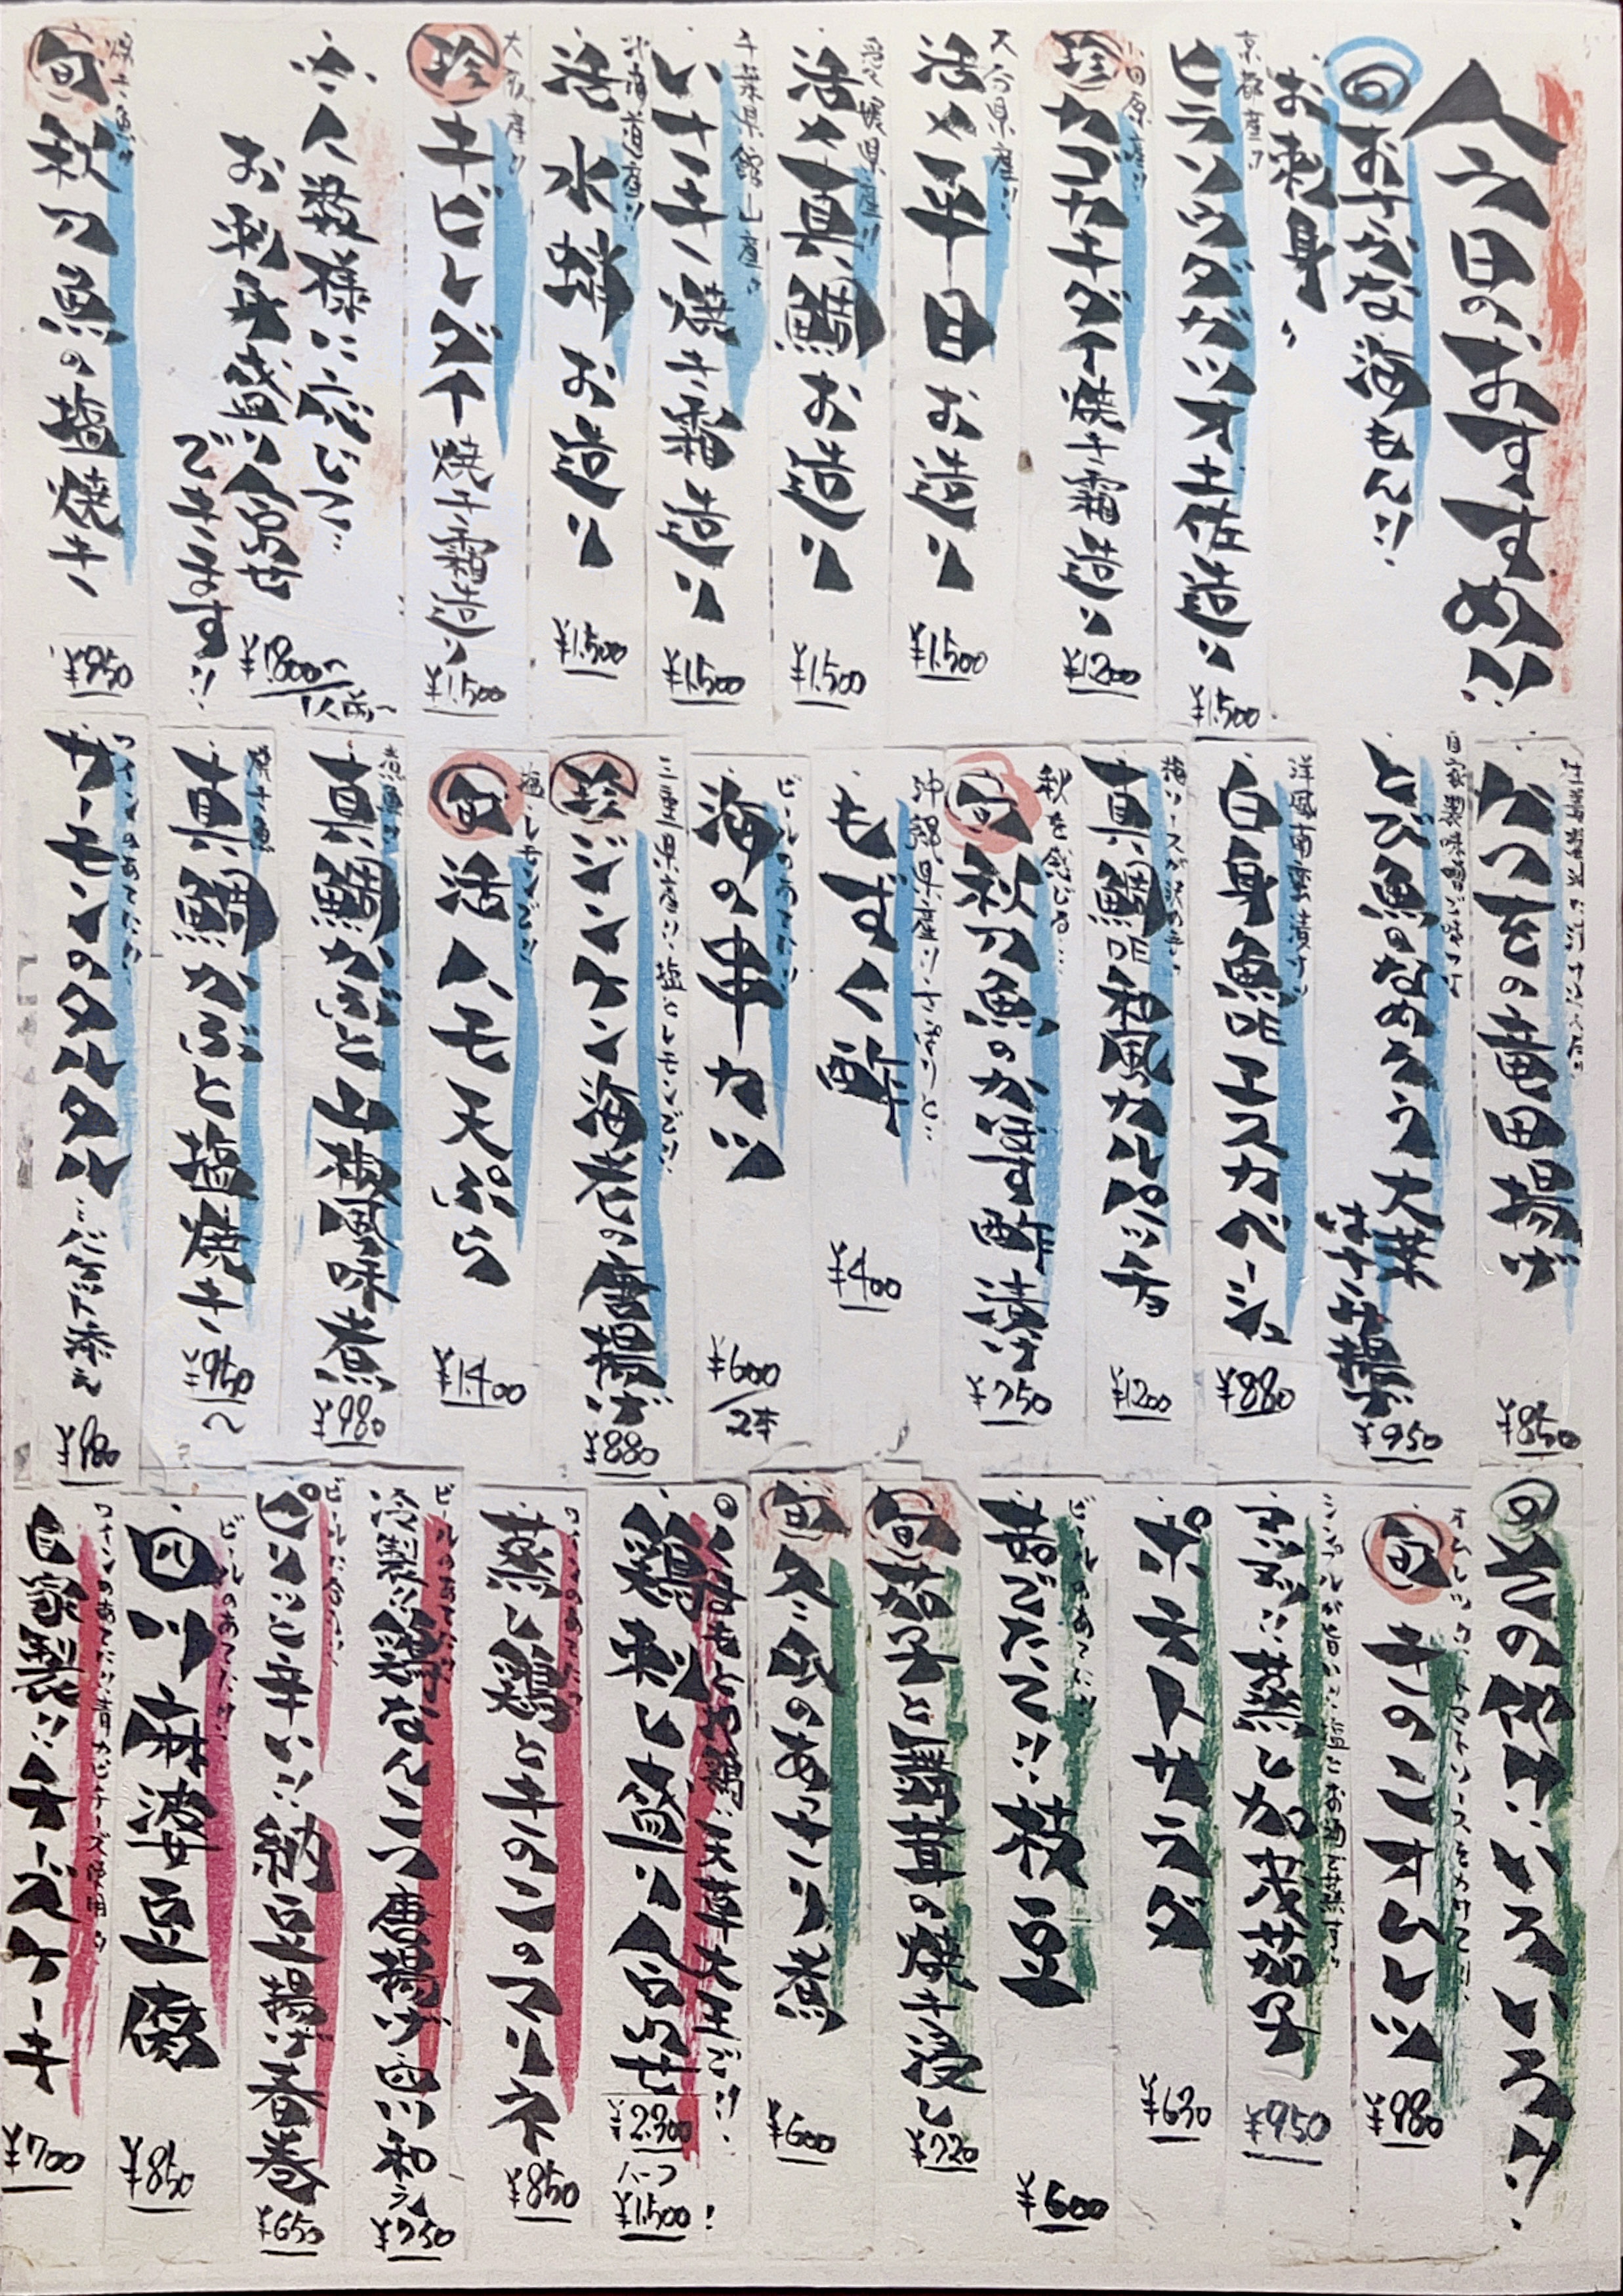 今日のおすすめ!!
旬 おさかな海もん!!
お刺身、
京都産!!
ヒラソウダガツオ土佐造り
¥1,500
珍 タカノハダイ焼き霜造り
¥1,200
大分県産!!
活〆平目お造り
¥1,500
愛媛県産!!
活〆真鯛お造り
¥1,500
千葉県館山産!!
いさき焼き霜造り
¥1,500
北海道産!!
活水蛸お造り
¥1,500
大阪産!!
珍 キビレダイ焼き霜造り
¥1,500
ご人数様に応じて…
お刺身盛り合せ
できます!!
¥1,800〜/1人前〜
焼き魚!!
旬 秋刀魚の塩焼き
¥950
かつをの竜田揚げ
¥850
自家製味噌で味つけ
とび魚のなめろう大葉
はさみ揚げ
¥950
洋風南蛮漬け
白身魚のエスカベーシュ
¥880
真鯛の和風カルパッチョ
¥1,200
秋を感じる…
旬 秋刀魚のかぼす酢漬け
¥750
沖縄県産!!さっぱりと…
もずく酢
¥400
ビールのあてに!!
海の串カツ
¥600/2本
三重県産!!塩とレモンで!!
珍 ジンケン海老の唐揚げ
¥880
塩とレモンで!!
旬 活ハモ天ぷら
¥1,400
煮魚!!
真鯛かぶと山椒風味煮
¥980
焼き魚
真鯛かぶと塩焼き
¥950〜
ワインのあてに!!
サーモンのタルタル…バゲット添え
¥980
その他いろいろ!!
旬 きのこオムレツ
¥980
シンプルが旨い!!塩とお酒で蒸す!!
アツアツ!!蒸し加茂茄子
¥950
ポテトサラダ
¥630
ビールのあてに!!
茹でたて!!枝豆
¥600
旬 茄子と舞茸の焼き浸し
¥720
旬 冬瓜のあっさり煮
¥600
鶏刺し盛り合わせ
¥2,300
ハーフ
¥1,500
ワインのあてに!!
蒸し鶏ときのこのマリネ
¥850
ビールのあてに!!
冷製!!鶏なんこつ唐揚げ四川和え
¥750
ビールに合う!!
ピリッと辛い!!納豆揚げ春巻
¥650
ビールのあてに!!
四川麻婆豆腐
¥850
ワインのあてに!!青カビチーズ使用!!
自家製!!チーズケーキ
¥700